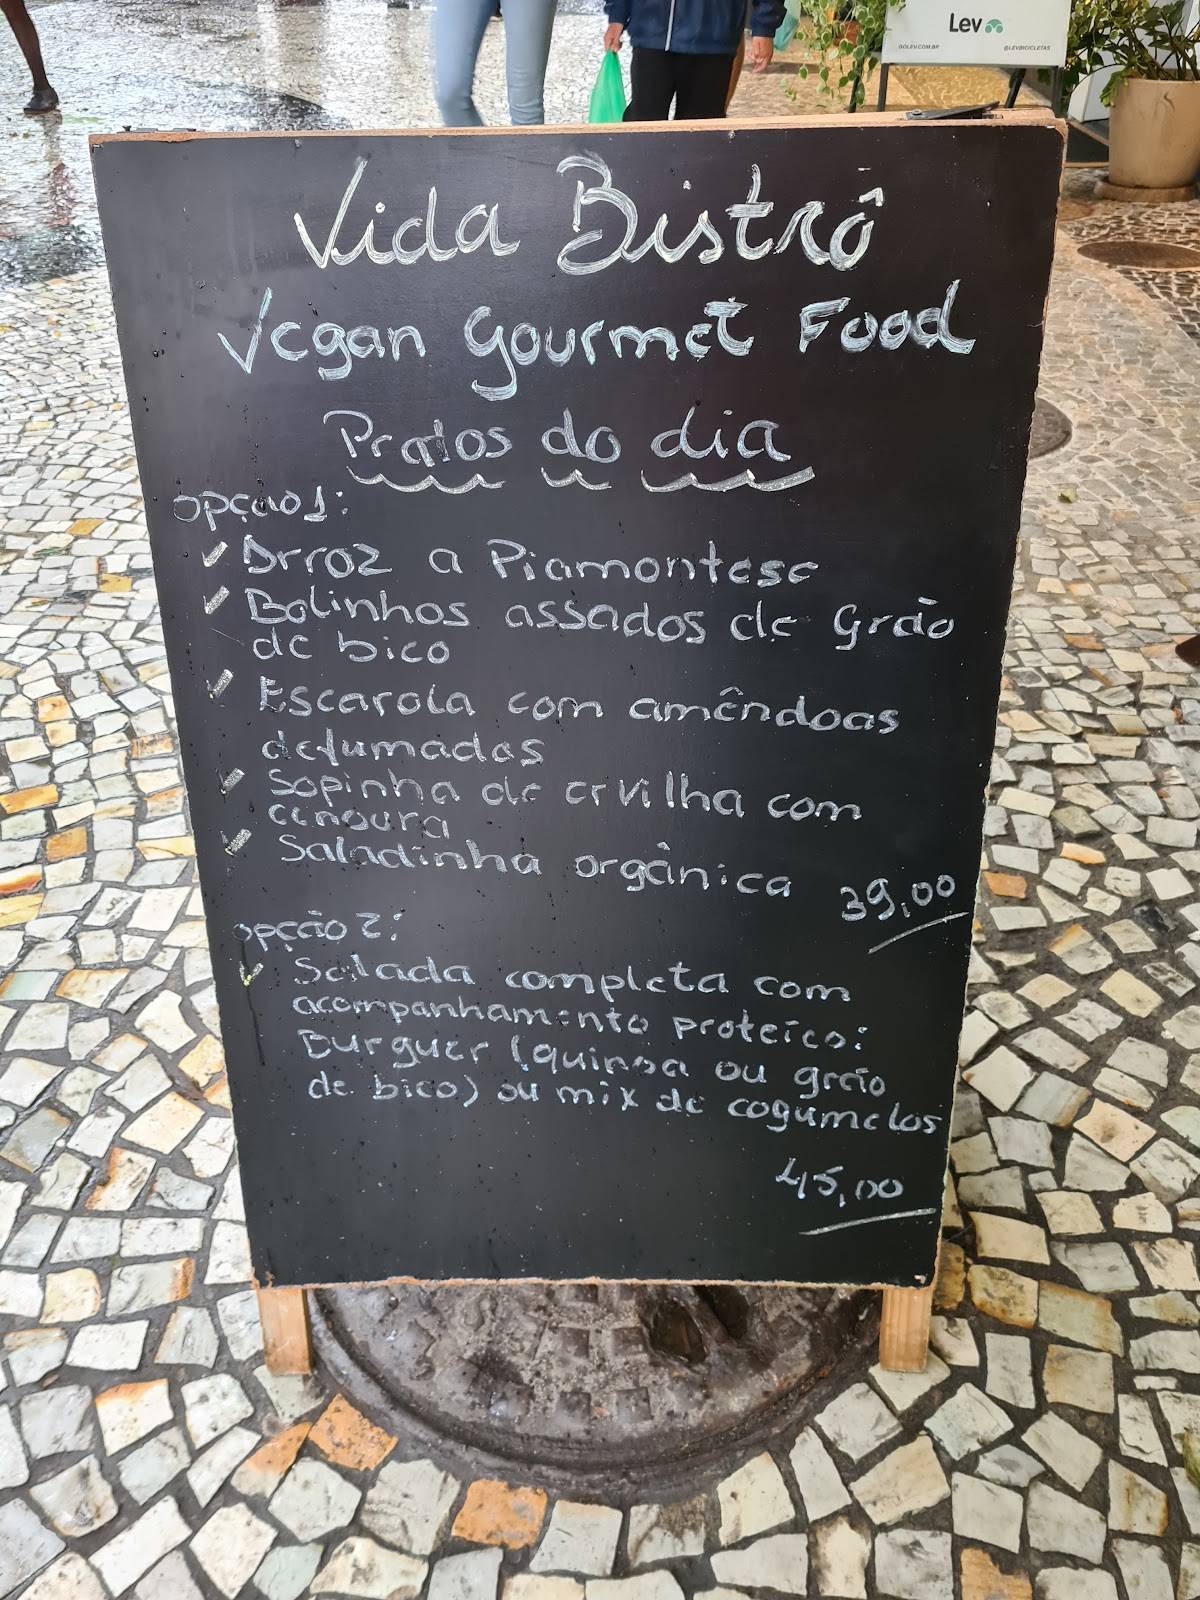 Lev
GOLEV.COM.BR @LEVBICICLETAS
Vida Bistrô
Vegan Gourmet Food
Pratos do dia
opção 1:
Arroz a Piamontese
Bolinhos assados de Grão
de bico
Escarola com amêndoas
defumadas
Sopinha de ervilha com
cenoura
Saladinha orgânica 39,00
opção 2:
Salada completa com
acompanhamento proteico:
Burguer (quinoa ou grão
de bico) ou mix de cogumelos
45,00